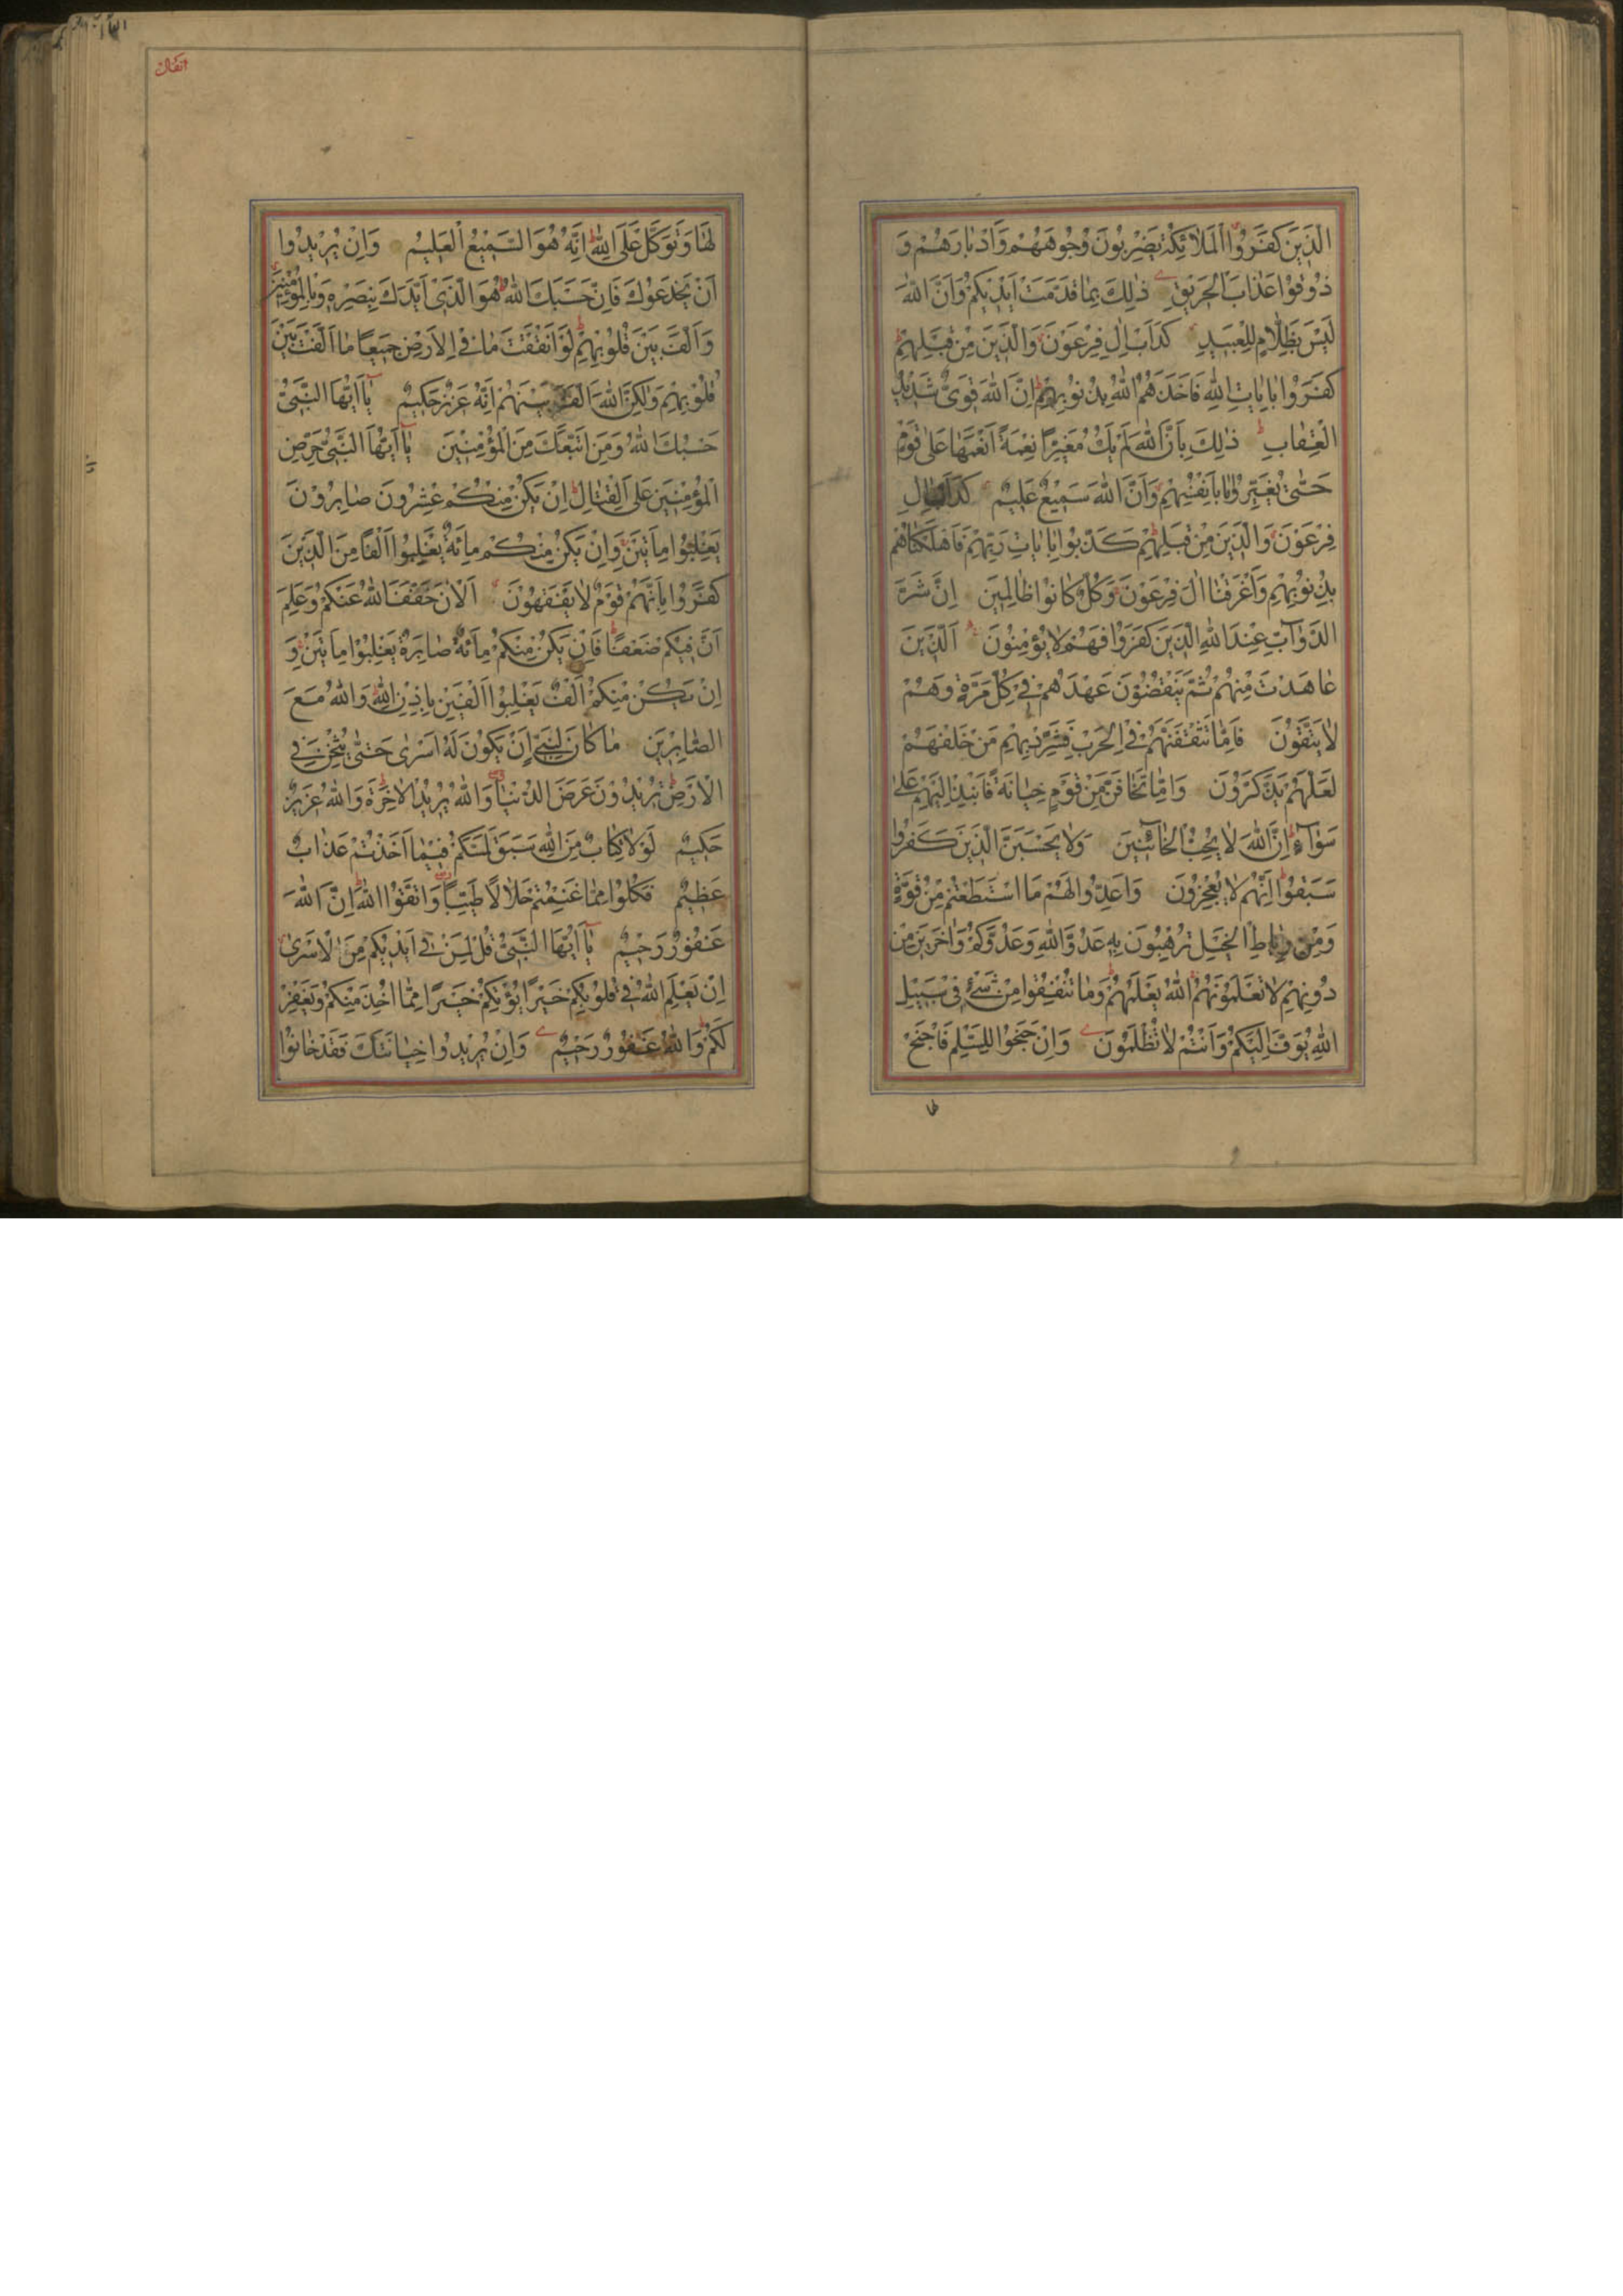 الَّذِينَ كَفَرُوا الْمَلَائِكَةُ يَضْرِبُونَ وُجُوهَهُمْ وَأَدْبَارَهُمْ وَ
ذُوقُوا عَذَابَ الْحَرِيقِ ذَلِكَ بِمَا قَدَّمَتْ أَيْدِيكُمْ وَأَنَّ اللَّهَ
لَيْسَ بِظَلَّامٍ لِلْعَبِيدِ كَدَأْبِ آلِ فِرْعَوْنَ وَالَّذِينَ مِنْ قَبْلِهِمْ
كَفَرُوا بِآيَاتِ اللَّهِ فَأَخَذَهُمُ اللَّهُ بِذُنُوبِهِمْ إِنَّ اللَّهَ قَوِيٌّ شَدِيدُ
الْعِقَابِ ذَلِكَ بِأَنَّ اللَّهَ لَمْ يَكُ مُغَيِّرًا نِعْمَةً أَنْعَمَهَا عَلَى قَوْمٍ
حَتَّى يُغَيِّرُوا مَا بِأَنْفُسِهِمْ وَأَنَّ اللَّهَ سَمِيعٌ عَلِيمٌ كَدَأْبِ آلِ
فِرْعَوْنَ وَالَّذِينَ مِنْ قَبْلِهِمْ كَذَّبُوا بِآيَاتِ رَبِّهِمْ فَأَهْلَكْنَاهُمْ
بِذُنُوبِهِمْ وَأَغْرَقْنَا آلَ فِرْعَوْنَ وَكُلٌّ كَانُوا ظَالِمِينَ إِنَّ شَرَّ
الدَّوَابِّ عِنْدَ اللَّهِ الَّذِينَ كَفَرُوا فَهُمْ لَا يُؤْمِنُونَ الَّذِينَ
عَاهَدْتَ مِنْهُمْ ثُمَّ يَنْقُضُونَ عَهْدَهُمْ فِي كُلِّ مَرَّةٍ وَهُمْ
لَا يَتَّقُونَ فَإِمَّا تَثْقَفَنَّهُمْ فِي الْحَرْبِ فَشَرِّدْ بِهِمْ مَنْ خَلْفَهُمْ
لَعَلَّهُمْ يَذَّكَّرُونَ وَإِمَّا تَخَافَنَّ مِنْ قَوْمٍ خِيَانَةً فَانْبِذْ إِلَيْهِمْ عَلَى
سَوَاءٍ إِنَّ اللَّهَ لَا يُحِبُّ الْخَائِنِينَ وَلَا يَحْسَبَنَّ الَّذِينَ كَفَرُوا
سَبَقُوا إِنَّهُمْ لَا يُعْجِزُونَ وَأَعِدُّوا لَهُمْ مَا اسْتَطَعْتُمْ مِنْ قُوَّةٍ
وَمِنْ رِبَاطِ الْخَيْلِ تُرْهِبُونَ بِهِ عَدُوَّ اللَّهِ وَعَدُوَّكُمْ وَآخَرِينَ مِنْ
دُونِهِمْ لَا تَعْلَمُونَهُمُ اللَّهُ يَعْلَمُهُمْ وَمَا تُنْفِقُوا مِنْ شَيْءٍ فِي سَبِيلِ
اللَّهِ يُوَفَّ إِلَيْكُمْ وَأَنْتُمْ لَا تُظْلَمُونَ وَإِنْ جَنَحُوا لِلسَّلْمِ فَاجْنَحْ
لها
انفال
لَهَا وَتَوَكَّلْ عَلَى اللَّهِ إِنَّهُ هُوَ السَّمِيعُ الْعَلِيمُ وَإِنْ يُرِيدُوا
أَنْ يَخْدَعُوكَ فَإِنَّ حَسْبَكَ اللَّهُ هُوَ الَّذِي أَيَّدَكَ بِنَصْرِهِ وَبِالْمُؤْمِنِينَ
وَأَلَّفَ بَيْنَ قُلُوبِهِمْ لَوْ أَنْفَقْتَ مَا فِي الْأَرْضِ جَمِيعًا مَا أَلَّفْتَ بَيْنَ
قُلُوبِهِمْ وَلَكِنَّ اللَّهَ أَلَّفَ بَيْنَهُمْ إِنَّهُ عَزِيزٌ حَكِيمٌ يَا أَيُّهَا النَّبِيُّ
حَسْبُكَ اللَّهُ وَمَنِ اتَّبَعَكَ مِنَ الْمُؤْمِنِينَ يَا أَيُّهَا النَّبِيُّ حَرِّضِ
الْمُؤْمِنِينَ عَلَى الْقِتَالِ إِنْ يَكُنْ مِنْكُمْ عِشْرُونَ صَابِرُونَ
يَغْلِبُوا مِائَتَيْنِ وَإِنْ يَكُنْ مِنْكُمْ مِائَةٌ يَغْلِبُوا أَلْفًا مِنَ الَّذِينَ
كَفَرُوا بِأَنَّهُمْ قَوْمٌ لَا يَفْقَهُونَ الْآنَ خَفَّفَ اللَّهُ عَنْكُمْ وَعَلِمَ
أَنَّ فِيكُمْ ضَعْفًا فَإِنْ يَكُنْ مِنْكُمْ مِائَةٌ صَابِرَةٌ يَغْلِبُوا مِائَتَيْنِ وَ
إِنْ يَكُنْ مِنْكُمْ أَلْفٌ يَغْلِبُوا أَلْفَيْنِ بِإِذْنِ اللَّهِ وَاللَّهُ مَعَ
الصَّابِرِينَ مَا كَانَ لِنَبِيٍّ أَنْ يَكُونَ لَهُ أَسْرَى حَتَّى يُثْخِنَ فِي
الْأَرْضِ تُرِيدُونَ عَرَضَ الدُّنْيَا وَاللَّهُ يُرِيدُ الْآخِرَةَ وَاللَّهُ عَزِيزٌ
حَكِيمٌ لَوْلَا كِتَابٌ مِنَ اللَّهِ سَبَقَ لَمَسَّكُمْ فِيمَا أَخَذْتُمْ عَذَابٌ
عَظِيمٌ فَكُلُوا مِمَّا غَنِمْتُمْ حَلَالًا طَيِّبًا وَاتَّقُوا اللَّهَ إِنَّ اللَّهَ
غَفُورٌ رَحِيمٌ يَا أَيُّهَا النَّبِيُّ قُلْ لِمَنْ فِي أَيْدِيكُمْ مِنَ الْأَسْرَى
إِنْ يَعْلَمِ اللَّهُ فِي قُلُوبِكُمْ خَيْرًا يُؤْتِكُمْ خَيْرًا مِمَّا أُخِذَ مِنْكُمْ وَيَغْفِرْ
لَكُمْ وَاللَّهُ غَفُورٌ رَحِيمٌ وَإِنْ يُرِيدُوا خِيَانَتَكَ فَقَدْ خَانُوا